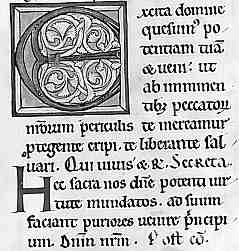 Excita domine
quesum' po
tentiam tuã
& ueni: ut
ab imminen
tib; peccatoꝝ
nrõrum periculis te mereamur
ptegente eripi. te liberante sal
uari. Qui uiuis & R. Secreta.
Hec sacra nos dñe potenti uir
tute mundatos. ad suum
faciant puriores uenire p'ncipi
um. Dnm nrm. Post cõ.